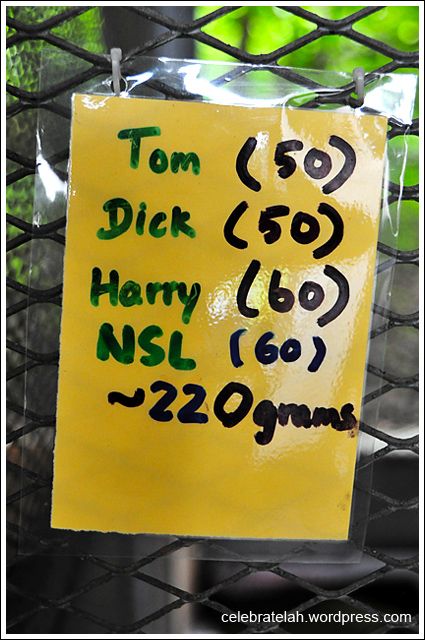 Tom (50)
Dick (50)
Harry (60)
NSL (60)
~220grams
celebratelah.wordpress.com